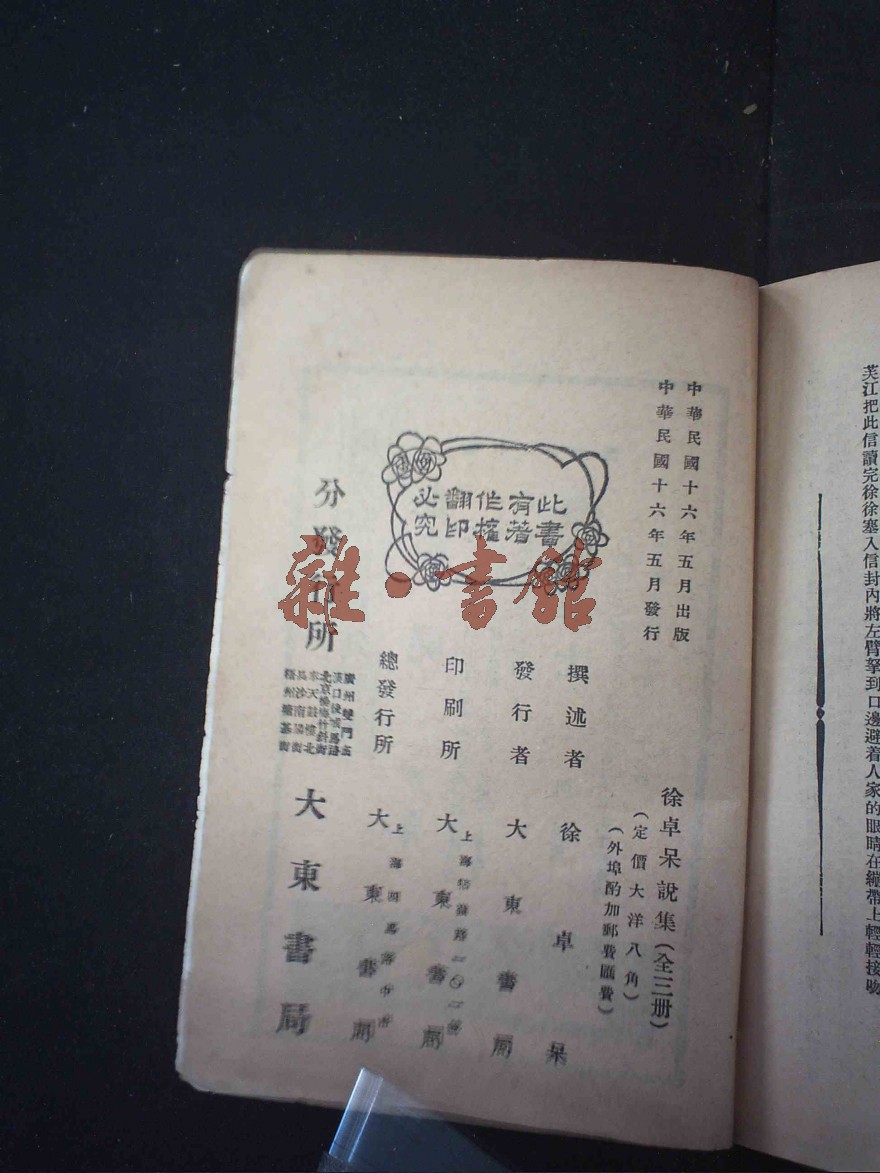 芙江把此信讀完徐徐塞入信封內將左臂拏到口邊避着人家的眼睛在繃帶上輕輕接吻
中華民國十六年五月出版
中華民國十六年五月發行
徐卓呆說集(全三册)
(定價大洋八角)
(外埠酌加郵費匯費)
此書
有著
作權
翻印
必究
撰述者 徐卓呆
發行者 大東書局
印刷所 上海 路一〇一號
大東書局
總發行所 上海四馬路中市
大東書局
分發行所
廣州雙門底
漢口後城馬路
北京楊梅竹斜街
奉天鼓樓北
長沙南陽街
梧州 基街
大東書局
雜·書館